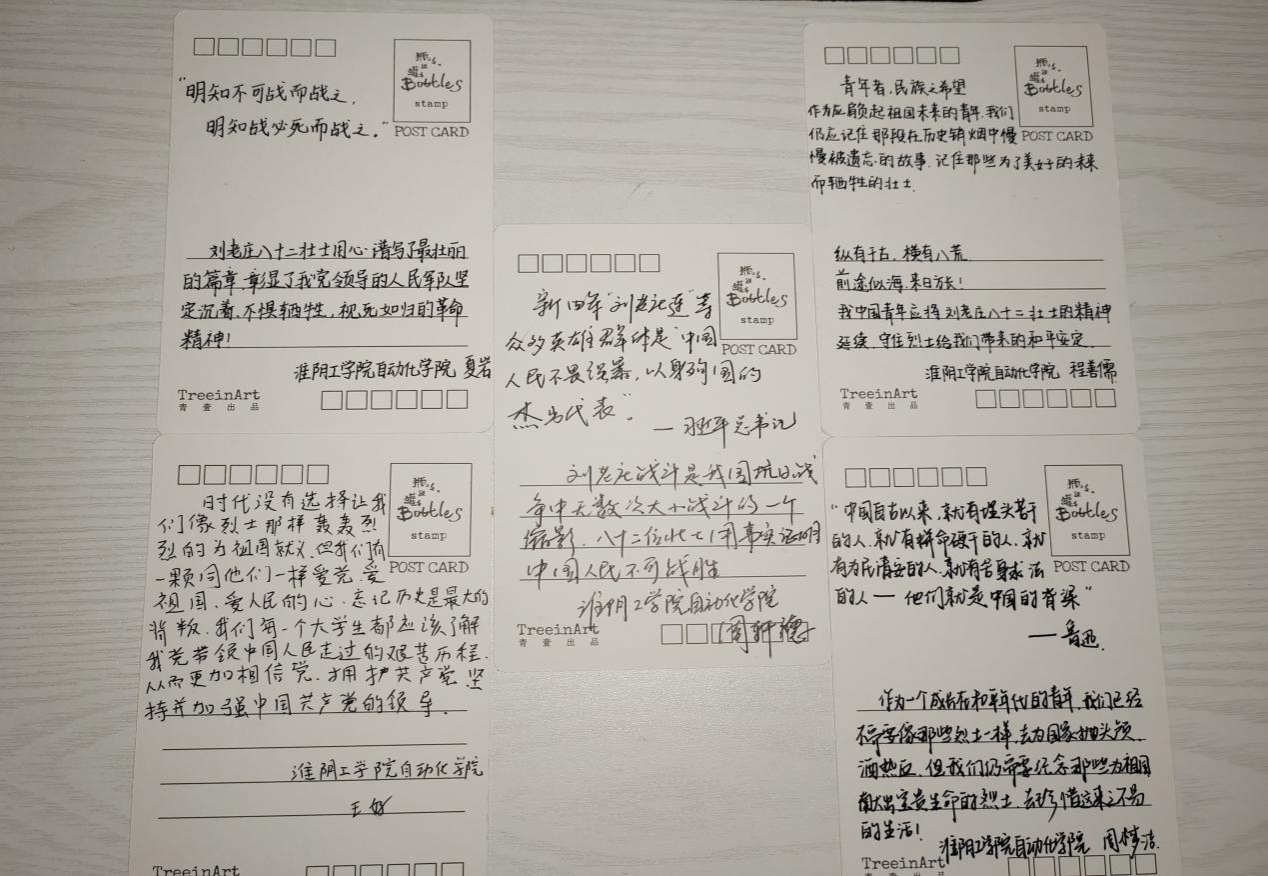 瓶
Bottles
stamp
POST CARD
“明知不可战而战之,
明知战必死而战之。”
刘老庄八十二壮士用心谱写了最壮丽
的篇章,彰显了我党领导的人民军队坚
定沉着、不惧牺牲,视死如归的革命
精神!
淮阴工学院自动化学院 夏岩
TreeinArt
青壹出品
瓶
Bottles
stamp
POST CARD
新四军“刘老庄连”等
众多英雄群体是“中国
人民不畏强暴,以身殉国的
杰出代表”。
—习近平总书记
刘老庄战斗是我国抗日战
争中无数次大小战斗的一个
缩影,八十二位壮士用事实证明
中国人民不可战胜
淮阴工学院自动化学院
周轩德
TreeinArt
青壹出品
瓶
Bottles
stamp
POST CARD
青年者,民族之希望
作为应肩负起祖国未来的青年,我们
仍应记住那段在历史销烟中慢
慢被遗忘的故事.记住那些为了美好的未来
而牺牲的壮士.
纵有千古,横有八荒
前途似海,来日方长!
我中国青年应将刘老庄八十二壮士的精神
延续,守住烈士给我们带来的和平安定.
淮阴工学院自动化学院 程善儒
TreeinArt
青壹出品
瓶
Bottles
stamp
POST CARD
时代没有选择让我
们像烈士那样轰轰烈
烈的为祖国献义,但我们有
一颗同他们一样爱党、爱
祖国、爱人民的心.忘记历史是最大的
背叛.我们每一个大学生都应该了解
我党带领中国人民走过的艰苦历程.
从而更加相信党.拥护共产党.坚
持并加强中国共产党的领导.
淮阴工学院自动化学院
王好
TreeinArt
瓶
Bottles
stamp
POST CARD
“中国自古以来,就有埋头苦干
的人,就有拼命硬干的人,就
有为民请命的人,就有舍身求法
的人—他们就是中国的脊梁”
—鲁迅.
作为一个成长在和平年代的青年,我们已经
不需要像那些烈士一样,去为国家抛头颅,
洒热血,但我们仍需要纪念那些为祖国
献出宝贵生命的烈士,去珍惜这来之不易
的生活!
淮阴工学院自动化学院 周梦洁.
TreeinArt